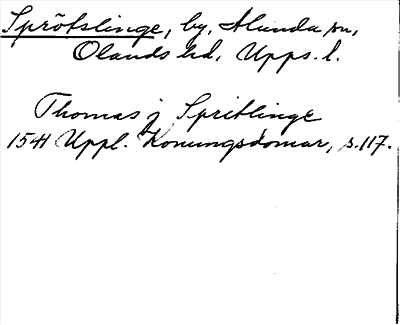 Sprötslinge, by, Alunda sn,
Olands hd, Upps. l.
Thomas j Spritlinge
1541 Uppl. Konungsdomar, s. 117.